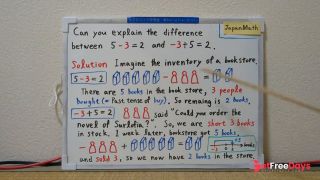 JapanMath
Can you explain the difference
between 5-3=2 and -3+5=2.
Solution Imagine the inventory of a bookstore.
5-3=2 - =
There are 5 books in the book store, 3 people
bought (= Past tense of buy). So remaing is 2 books,
-3+5=2 said "Could you order the
novel of ". So, we are short 3 books
in stock. 1 week later, bookstore got 5 books,
- + =
and sold 3, so we now have 2 books in the store.
GetFreeDays